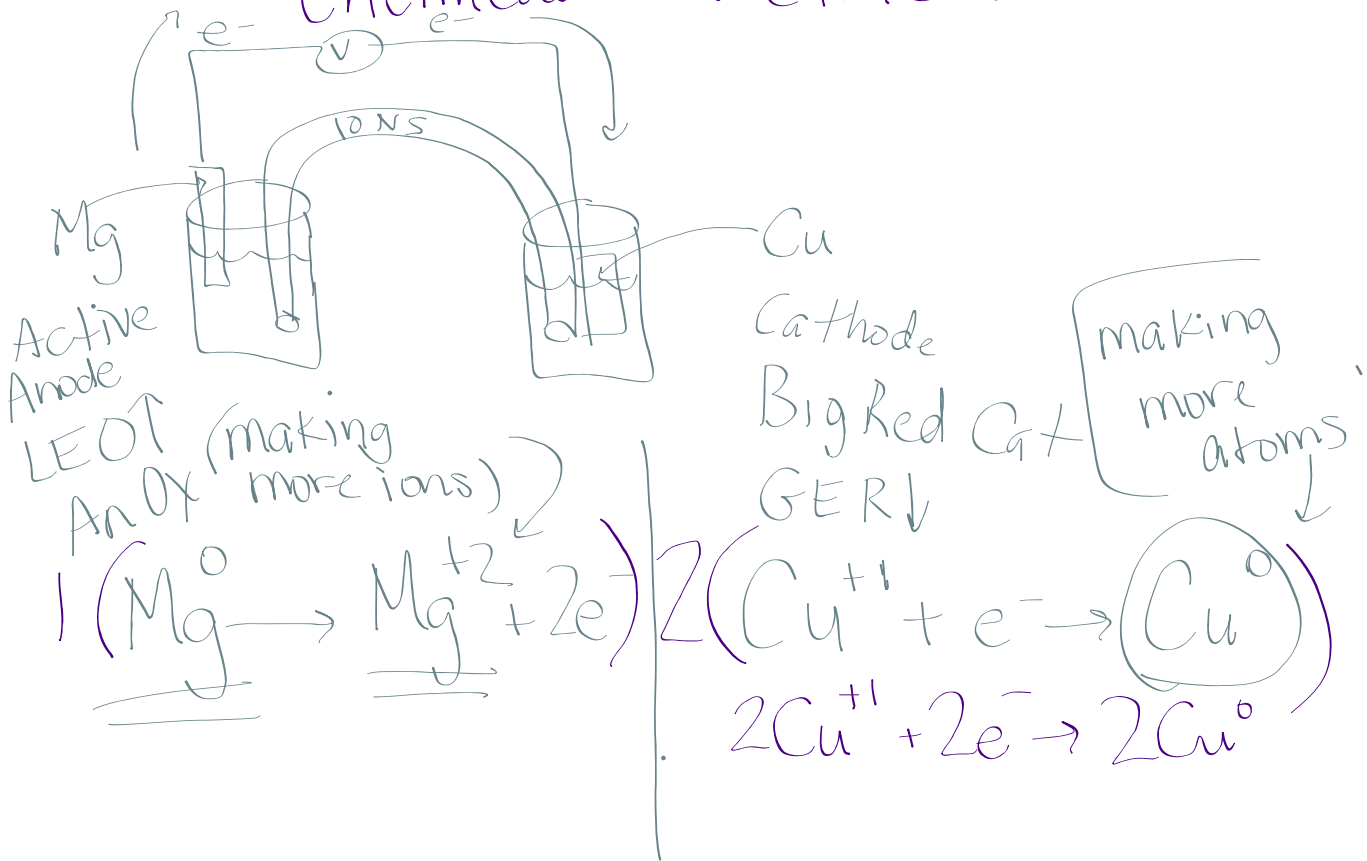 e⁻ e⁻
V
IONS
Mg
Cu
Active
Anode
LEO↑ (making
more ions)
An Ox
Cathode
Big Red Cat
GER↓
making
more
atoms
1(Mg⁰ → Mg⁺² + 2e⁻)
2(Cu⁺¹ + e⁻ → Cu⁰)
2Cu⁺¹ + 2e⁻ → 2Cu⁰